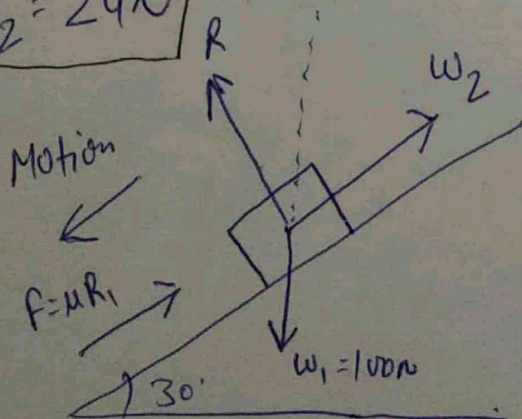 2 = 24N
R
W2
Motion
F=μR1
W1=100N
30°